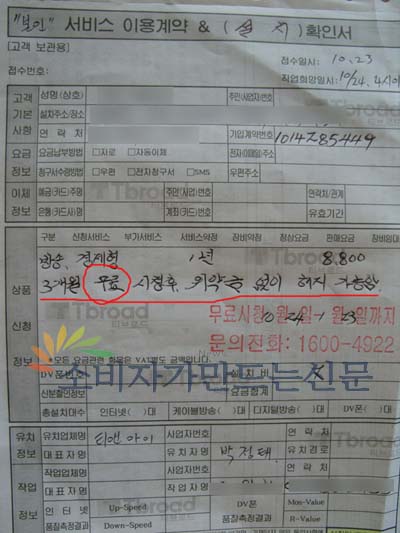 "본인" 서비스 이용계약 & ( 설 치 ) 확인서
[고객 보관용]
접수일시: 10.23
접수번호:
작업희망일시: 10/24.
고객 기본 사항
성명(상호)
주민(사업자)번호
설치주소/장소
연 락 처
가입계약번호 1014285449
요금 정보
요금납부방법 □지로 □자동이체
전자(이메일)주소
청구서수령방법 □우편 □전자청구서 □SMS
우편주소
이체 정보
예금(카드)주명
주민(사업)번호
연락처/관계
은행(카드)사명
계좌(카드)번호
유효기간
Tbroad
상품 신청 정보
구분 신청서비스 부가서비스 서비스약정 장비약정 정상요금 판매요금 장비임대
방송, 경제형 1년 8,800
3개월 무료 시청후 위약금 없이 해지 가능함
Tbroad
티브로드
무료시청 10월 24일~1월 23일까지
문의전화: 1600-4922
*모든 요금관련 항목은 VAT별도 금액입니다.
소비자가만드는신문
DV폰번호
설 치 비
신분할인정보
요금합계
총설치대수 인터넷( )대 케이블방송( )대 디지털방송( )대 DV폰( )대
유치 정보
유치업체명 티앤아이
사업자번호
연 락 처
대 표 자 명
유 치 자 명 박정태
유 치 경 로
작업 정보
작업업체명
사업자번호
연 락 처
대 표 자 명
작 업 자 명
인 터 넷 품질측정결과
Up-Speed
Down-Speed
DV폰 품질측정결과
Mos-Value
R-Value